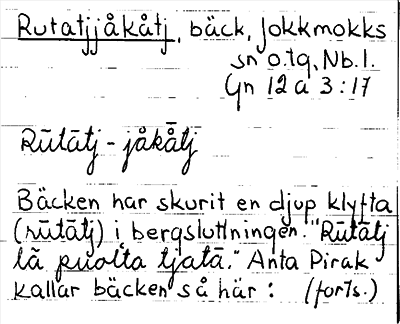 Rutatjjåkåtj, bäck, Jokkmokks
sn o. tg, Nb. l.
Gn 12 a 3:17
Rūtātj - jåkåtj
Bäcken har skurit en djup klyfta
(rūtātj) i bergsluttningen. "Rūtātj
lā puolta tjatā." Anta Pirak
kallar bäcken så här: (forts.)